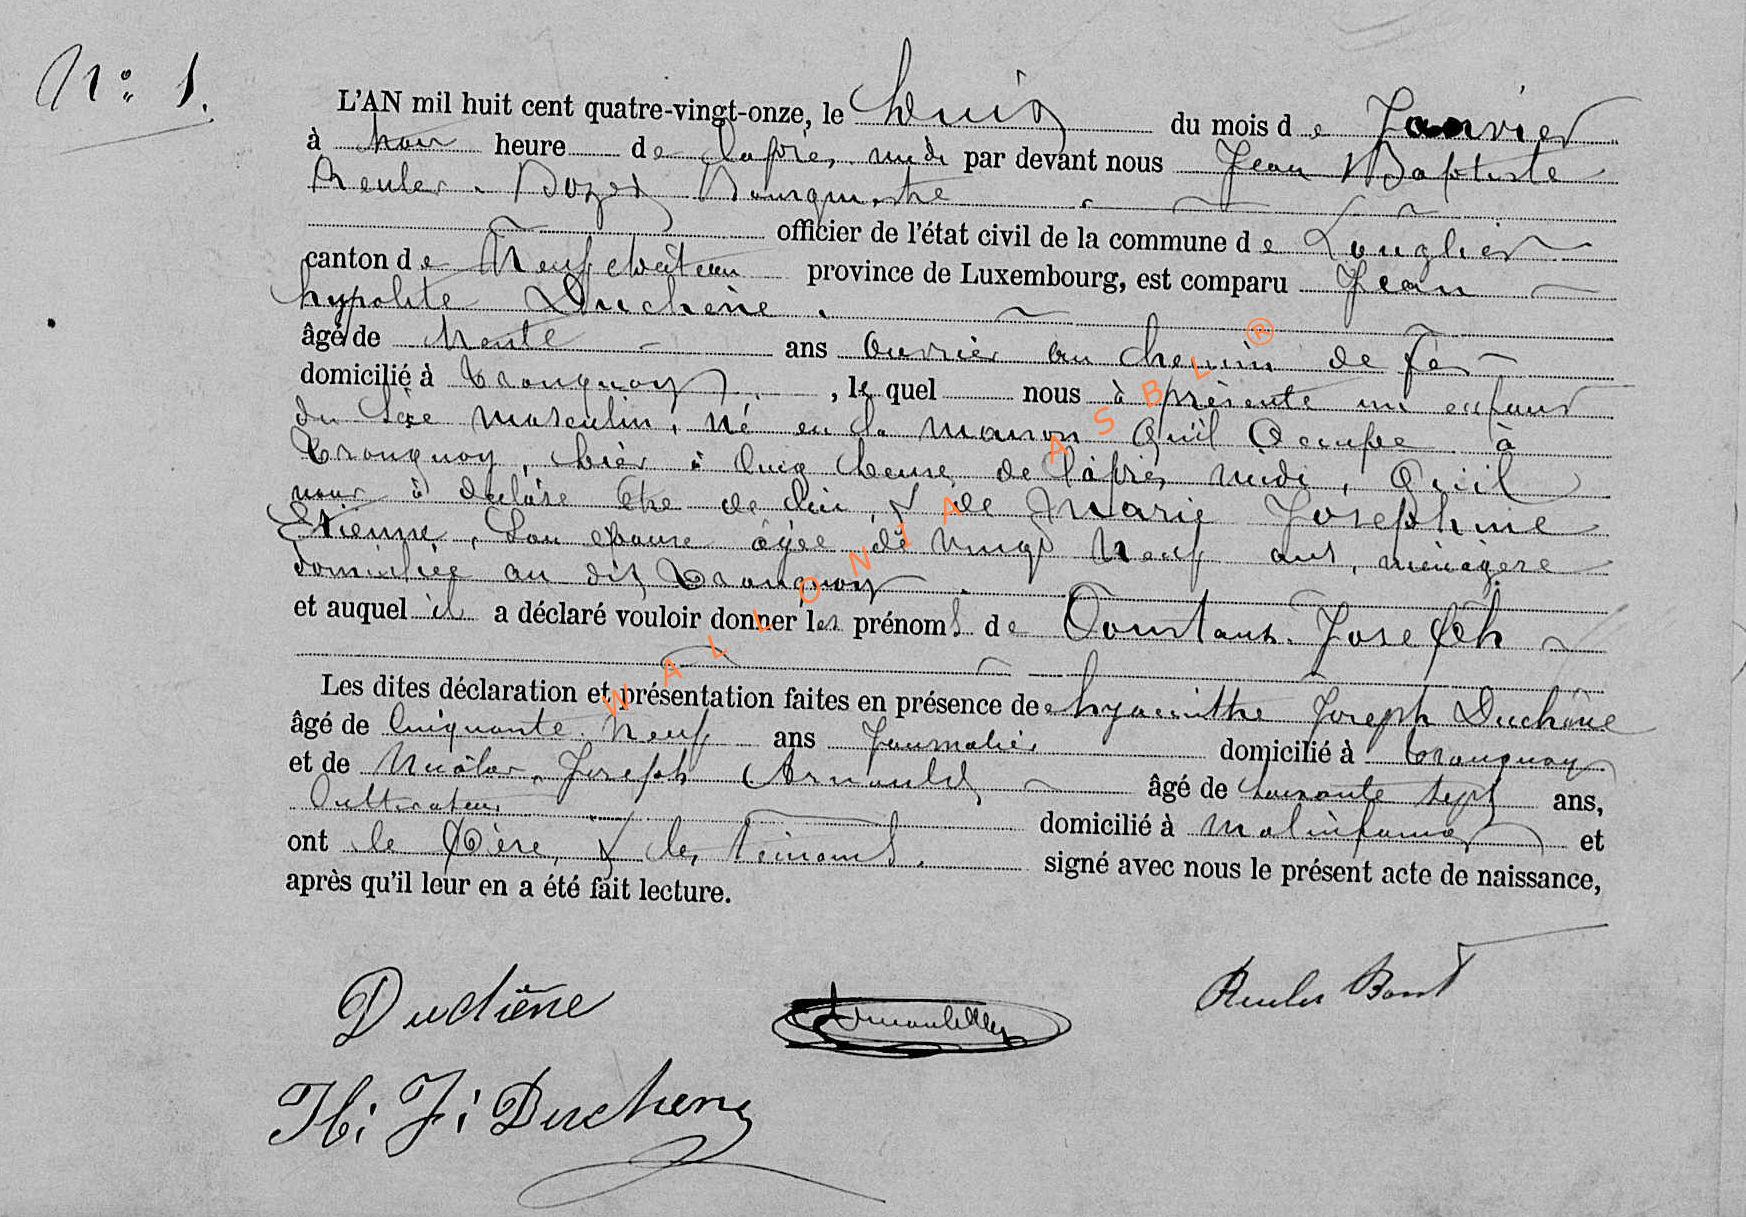 N° 1.
L'AN mil huit cent quatre-vingt-onze, le Cinq du mois de Janvier
à heure de l'après midi par devant nous Jean Baptiste
Reuler Bozet Bourgmestre
officier de l'état civil de la commune de Longlier
canton de Neufchâteau province de Luxembourg, est comparu Jean
hypolite Duchêne
âgé de trente ans Ouvrier au chemin de fer
domicilié à Tronquoy, lequel nous à présenté un enfant
du Sèxe masculin, né en la maison Qu'il Occupe à
Tronquoy, hièr à Cinq heure de l'après midi, Qu'il
nous à déclaré être de lui, & de Marie Josephine
Etienne, Son épouse âgée de Vingt Neuf ans, ménagère
domiciliée au dit Tronquoy.
et auquel il a déclaré vouloir donner les prénoms de Constant Joseph
Les dites déclaration et présentation faites en présence de hyacinthe Joseph Duchêne
âgé de Cinquante Neuf ans Journalier domicilié à Tronquoy
et de Nicolas Joseph Arnould âgé de Soixante Sept ans,
Cultivateur domicilié à Molinfaing et
ont le Père, & les témoins signé avec nous le présent acte de naissance,
après qu'il leur en a été fait lecture.
Duchêne
Reuler
H: J: Duchene
WALLONIA ASBL ®